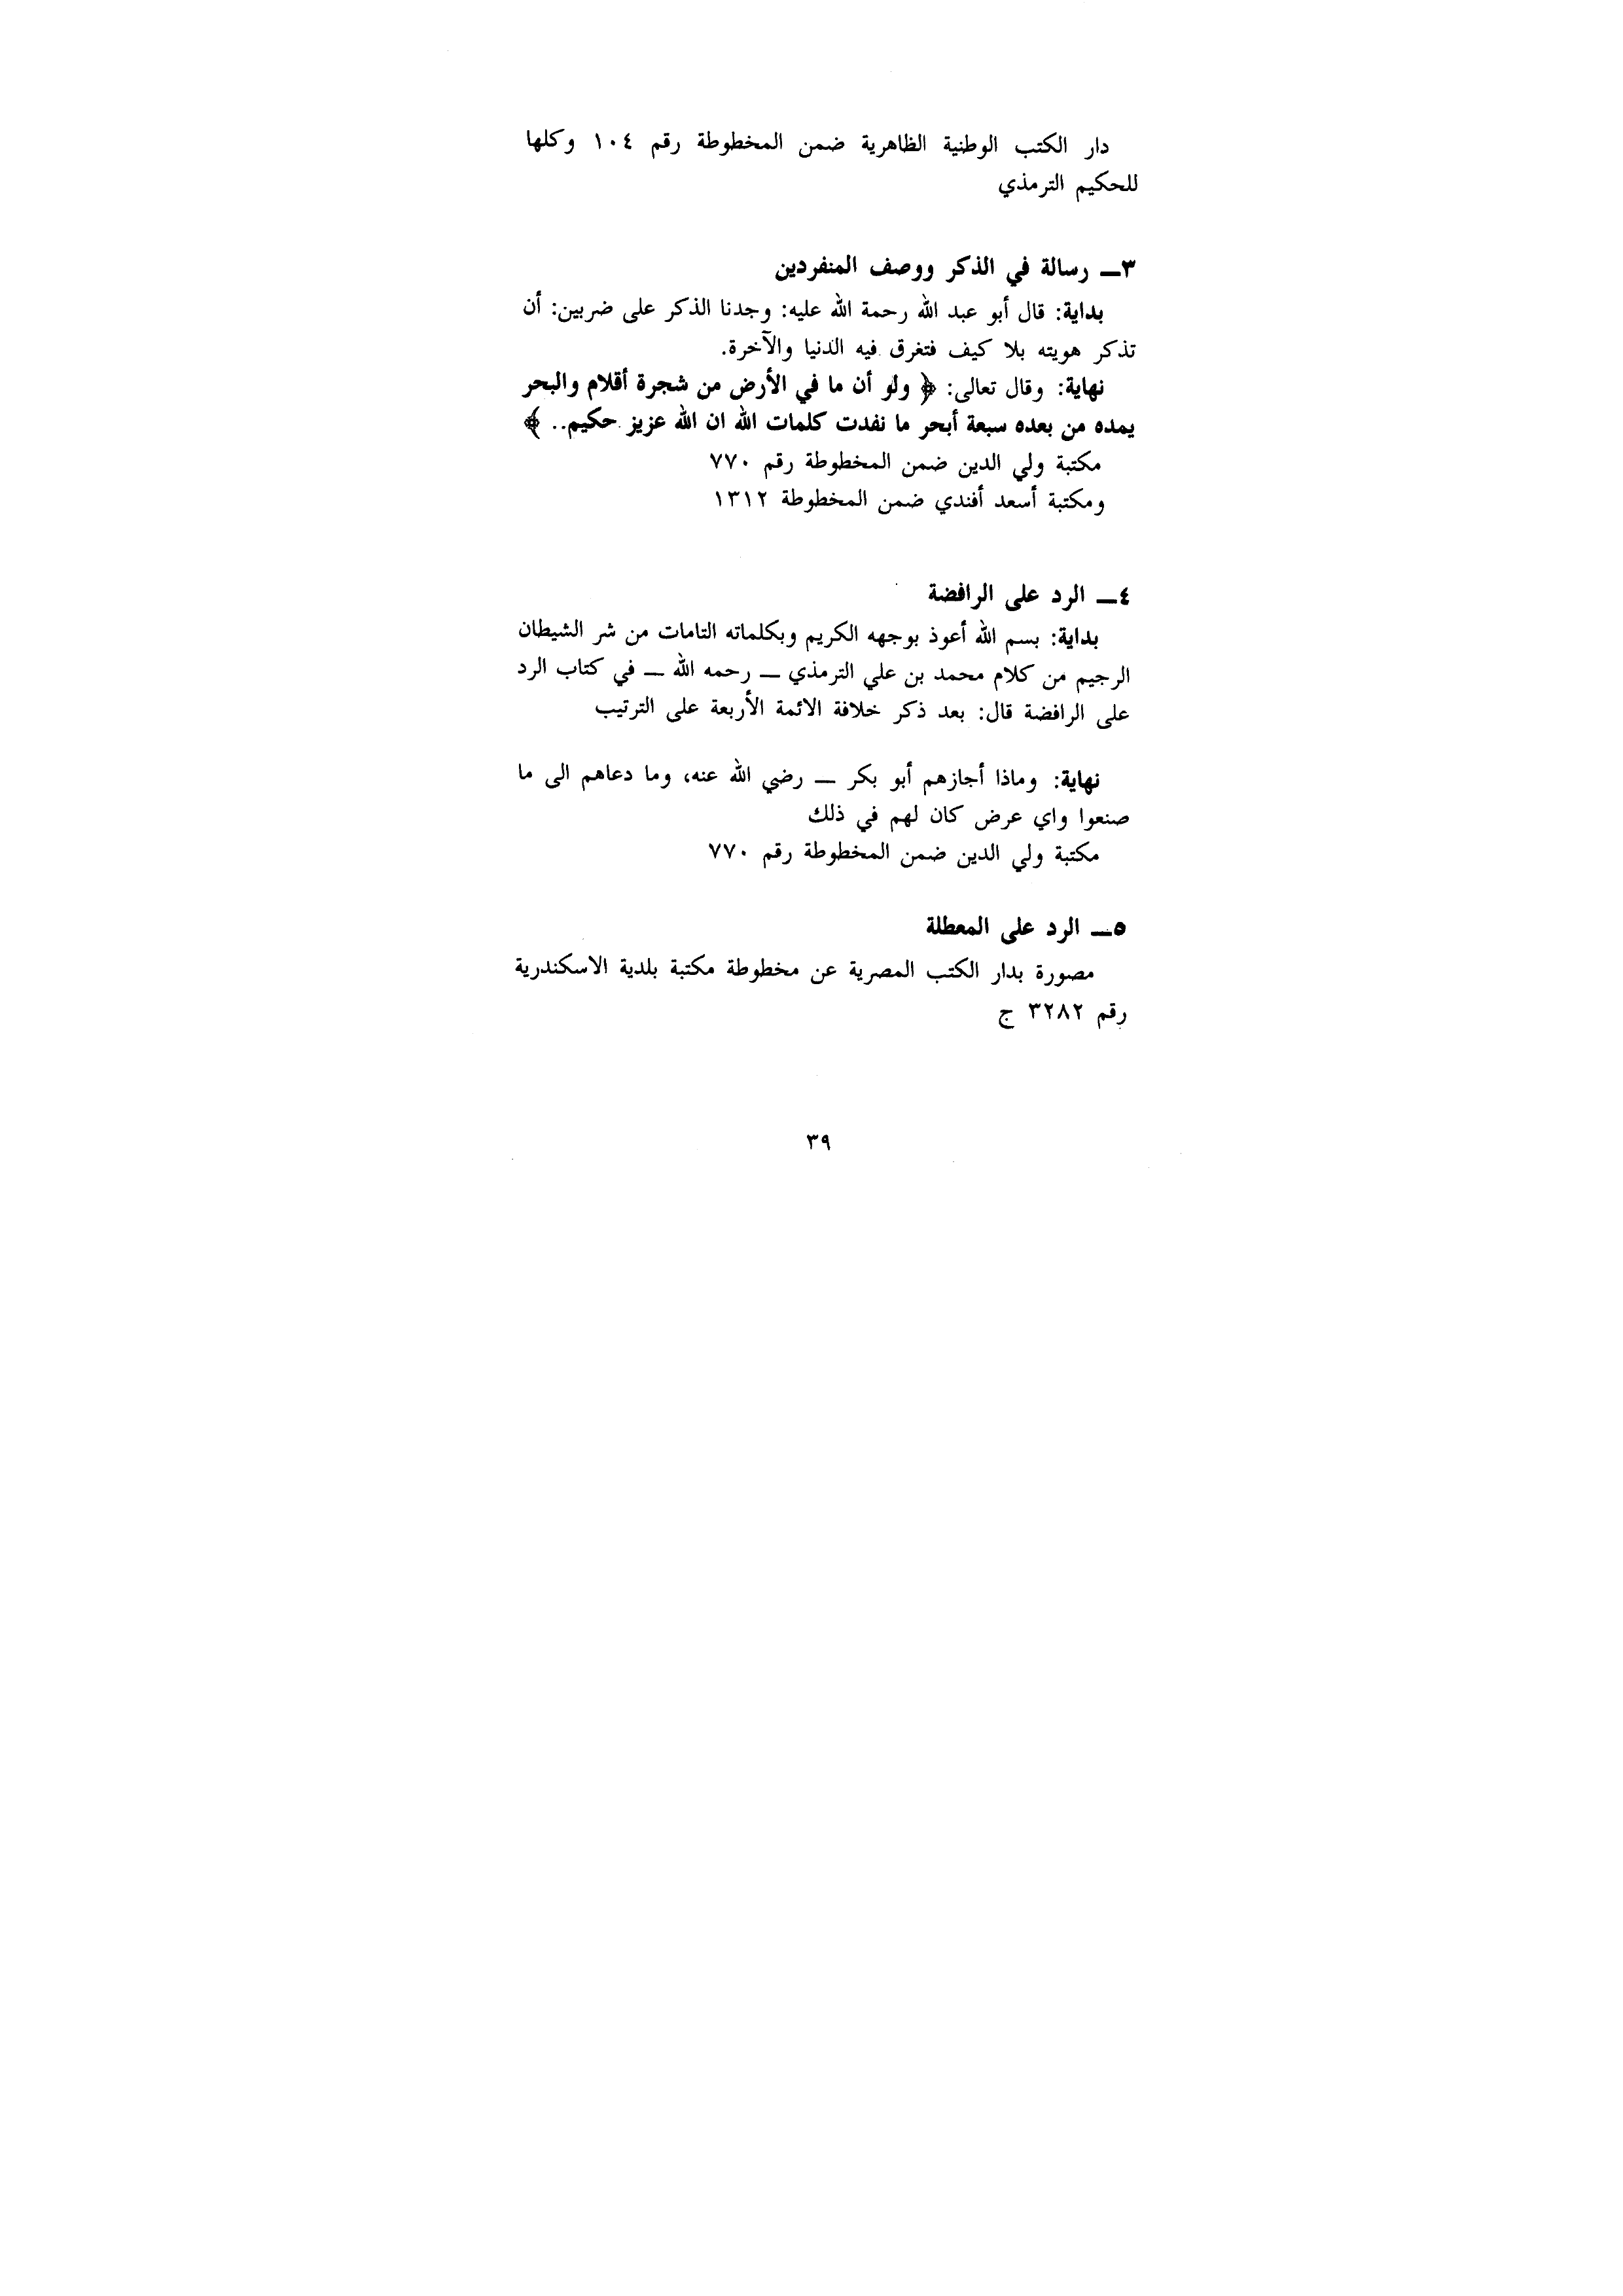 دار الكتب الوطنية الظاهرية ضمن المخطوطة رقم ١٠٤ وكلها
للحكيم الترمذي
٣ــ رسالة في الذكر ووصف المنفردين
بداية: قال أبو عبد الله رحمة الله عليه: وجدنا الذكر على ضربين: أن
تذكر هويته بلا كيف فتغرق فيه الدنيا والآخرة.
نهاية: وقال تعالى: ﴿ ولو أن ما في الأرض من شجرة أقلام والبحر
يمده من بعده سبعة أبحر ما نفدت كلمات الله ان الله عزيز حكيم.. ﴾
مكتبة ولي الدين ضمن المخطوطة رقم ٧٧٠
ومكتبة أسعد أفندي ضمن المخطوطة ١٣١٢
٤ــ الرد على الرافضة
بداية: بسم الله أعوذ بوجهه الكريم وبكلماته التامات من شر الشيطان
الرجيم من كلام محمد بن علي الترمذي ــ رحمه الله ــ في كتاب الرد
على الرافضة قال: بعد ذكر خلافة الائمة الأربعة على الترتيب
نهاية: وماذا أجازهم أبو بكر ــ رضي الله عنه، وما دعاهم الى ما
صنعوا واي عرض كان لهم في ذلك
مكتبة ولي الدين ضمن المخطوطة رقم ٧٧٠
٥ــ الرد على المعطلة
مصورة بدار الكتب المصرية عن مخطوطة مكتبة بلدية الاسكندرية
رقم ٣٢٨٢ ج
٣٩